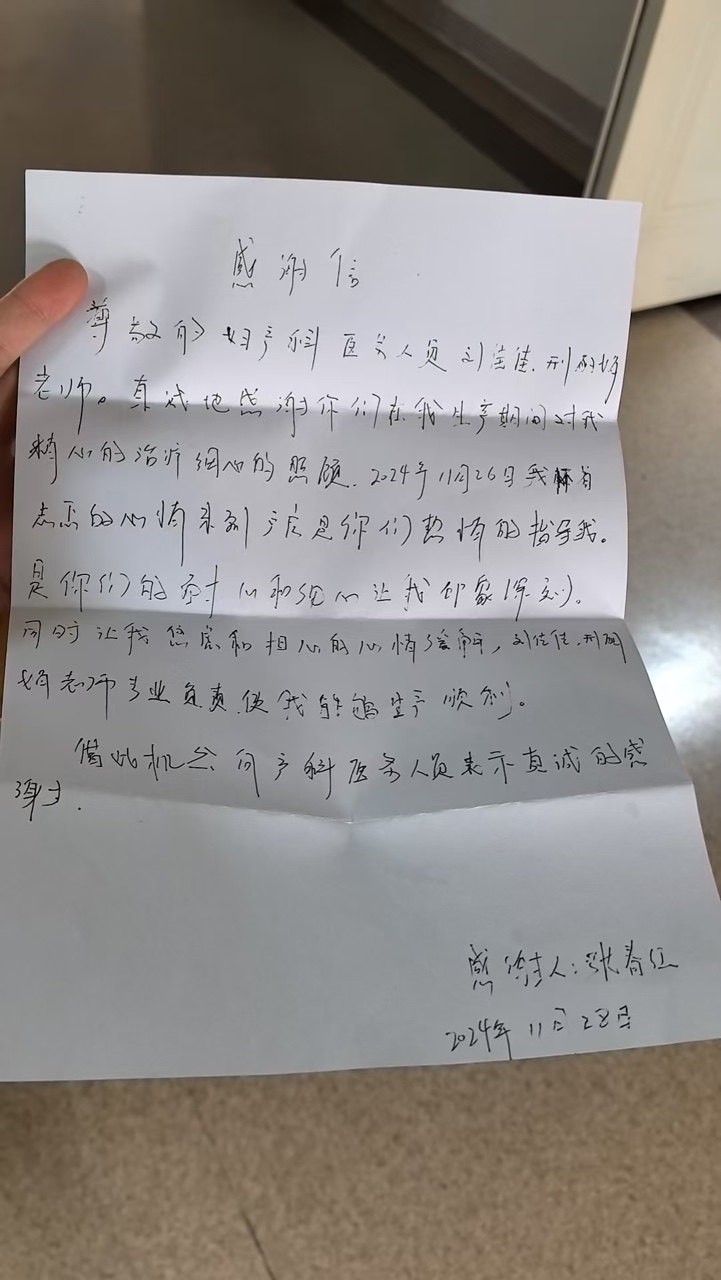 感谢信
尊敬的妇产科医务人员刘佳佳、刑
老师。真诚地感谢你们在我生产期间对我
精心的治疗细心的照顾、2024年11月26日我怀着
忐忑的心情来到产房是你们热情的指导我。
是你们的耐心和细心让我印象深刻。
同时让我焦虑和担心的心情缓解，刘佳佳、刑
老师专业负责、使我能够生产顺利。
借此机会向产科医务人员表示真诚的感
谢.
感谢人：张春红
2024年11月28日